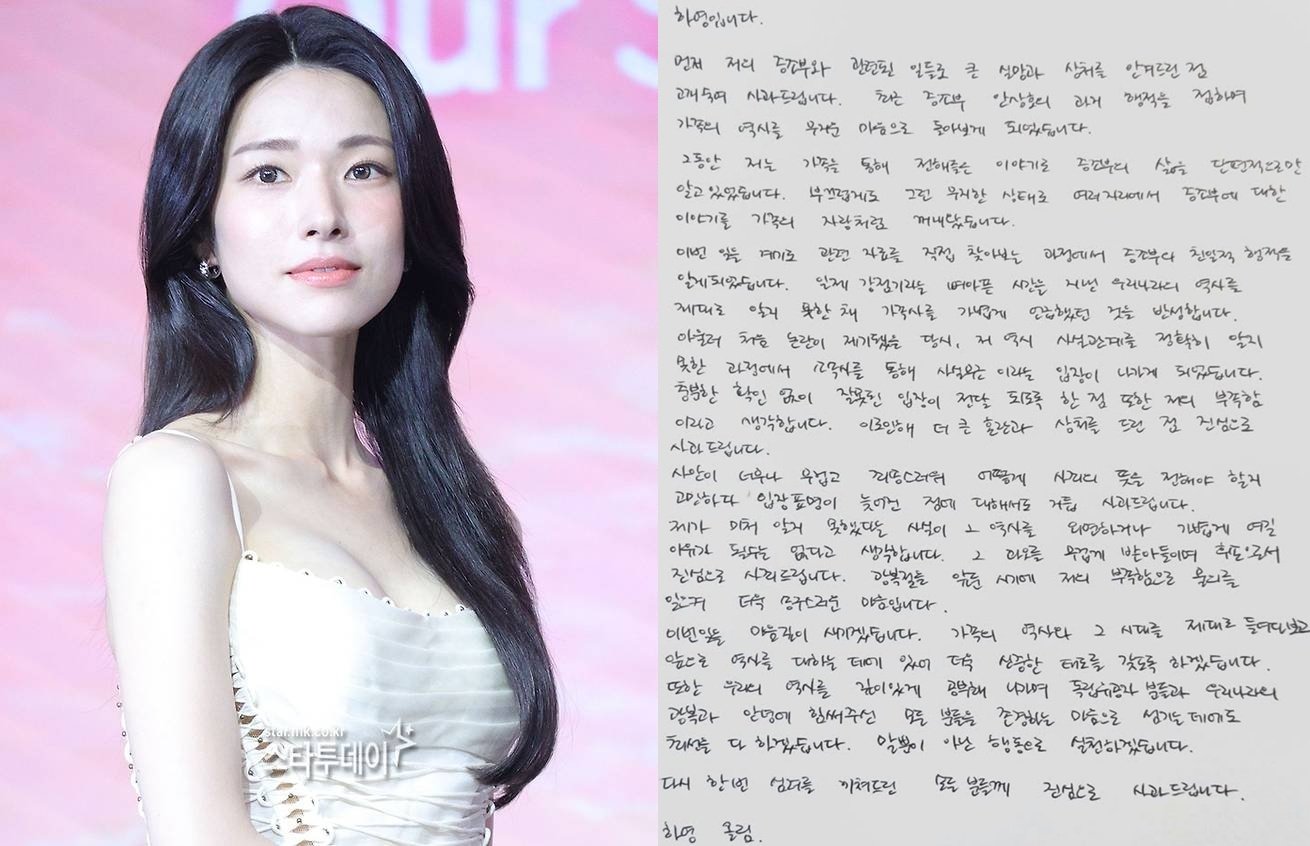 our s
star.mk.co.kr
스타투데이
하영입니다.
먼저 저의 증조부와 관련된 일들로 큰 실망과 상처를 안겨드린 점
고개숙여 사과드립니다. 최근 증조부 안상호의 과거 행적을 접하며
가족의 역사를 무거운 마음으로 돌아보게 되었습니다.
그동안 저는 가족을 통해 전해들은 이야기로 증조부의 삶을 단편적으로만
알고있었습니다. 부끄럽게도 그런 무지한 상태로 여러자리에서 증조부에 대한
이야기를 가족의 자랑처럼 꺼내왔습니다.
이번 일을 계기로 관련 자료를 직접 찾아보는 과정에서 증조부의 친일적 행적을
알게되었습니다. 일제 강점기라는 뼈아픈 시간을 지낸 우리나라의 역사를
제대로 알지 못한 채 가족사를 가볍게 언급했던 것을 반성합니다.
아울러 처음 논란이 제기됐을 당시, 저 역시 사실관계를 정확히 알지
못한 과정에서 소속사를 통해 사실무근 이라는 입장이 나가게 되었습니다.
충분한 확인 없이 잘못된 입장이 전달 되도록 한 점 또한 저의 부족함
이라고 생각합니다. 이로인해 더 큰 혼란과 상처를 드린 점 진심으로
사과드립니다.
사안이 너무나 무겁고 죄송스러워 어떻게 사죄의 뜻을 전해야 할지
고민하다 입장표명이 늦어진 점에 대해서도 거듭 사과드립니다.
제가 미처 알지 못했다는 사실이 그 역사를 외면하거나 가볍게 여길
이유가 될수는 없다고 생각합니다. 그 과오를 무겁게 받아들이며 후손으로서
진심으로 사죄드립니다. 광복절을 앞둔 시기에 저의 부족함으로 물의를
일으켜 더욱 송구스러운 마음입니다.
이번일을 마음깊이 새기겠습니다. 가족의 역사와 그 시대를 제대로 들여다보고
앞으로 역사를 대하는 데에 있어 더욱 신중한 태도를 갖도록 하겠습니다.
또한 우리의 역사를 깊이있게 공부해 나가며 독립유공자 분들과 우리나라의
광복과 안녕에 힘써주신 모든 분들을 존경하는 마음으로 섬기는데에도
최선을 다 하겠습니다. 말뿐이 아닌 행동으로 실천하겠습니다.
다시 한번 심려를 끼쳐드린 모든 분들께 진심으로 사과드립니다.
하영 올림.